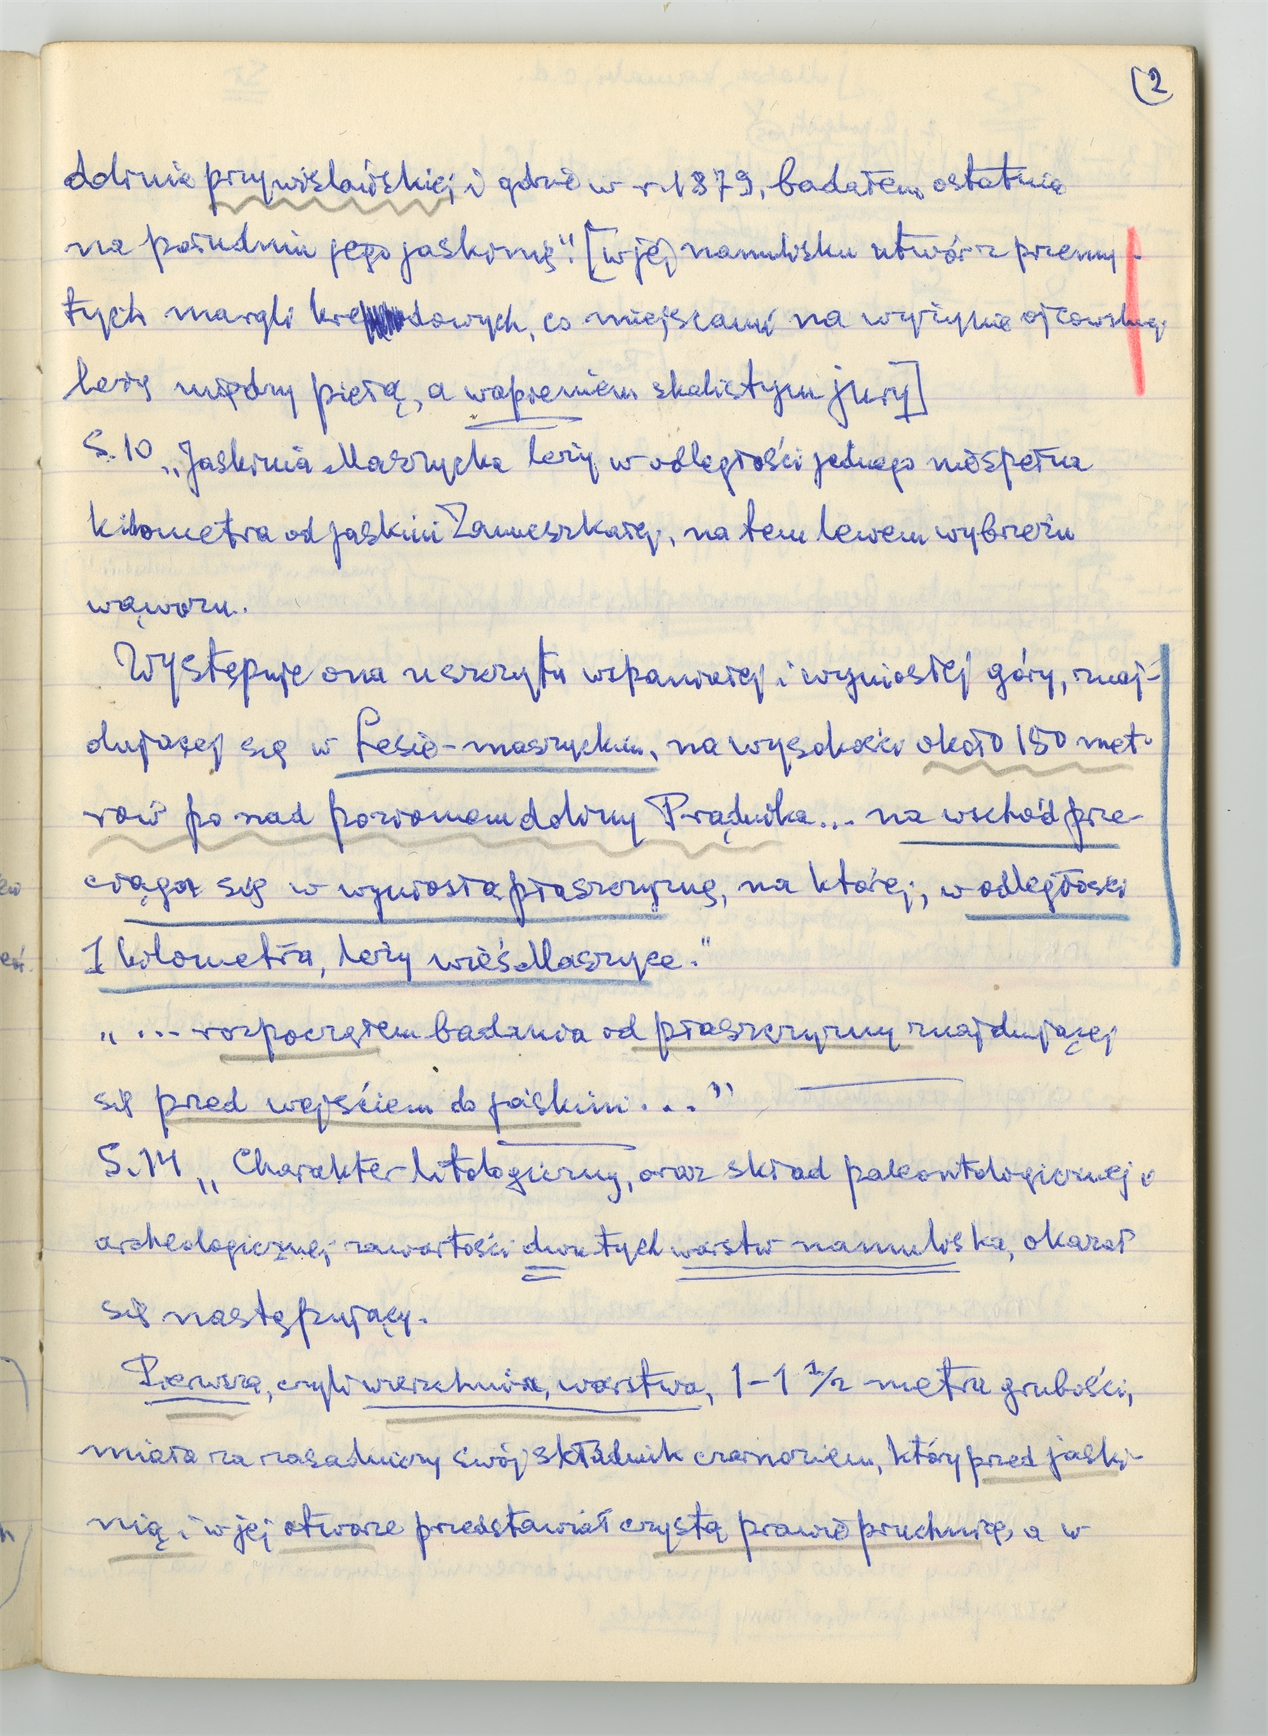 (2
dolinie przywiślańskiej i gdzie w r. 1879, badałem ostatnią
na południu jego jaskinię". [w jej namulisku utwór z przemy-
tych margli kredowych, co miejscami na wyżynie ojcowskiej
leży między pietą, a wapieniem skalistym jury]
S. 10 „Jaskinia Maszycka leży w odległości jednego niespełna
kilometra od jaskini Zamieszkałej, na tem lewem wybrzeżu
wąwozu.
Występuje ona u szczytu wspaniałej i wyniosłej góry, znaj-
dującej się w Lesie-maszyckim, na wysokości około 150 met-
rów po nad poziomem doliny Prądnika... na wschód prze-
ciąga się w wyniosłą płaszczyznę, na której, w odległości
1 kilometra, leży wieś Maszyce."
„ ... rozpocząłem badania od płaszczyzny znajdującej
się przed wejściem do jaskini..."
S. 14 „Charakter litologiczny, oraz skład paleontologicznej i
archeologicznej zawartości dwu tych warstw namuliska, okazał
się następujący.
Pierwsza, czyli wierzchnia, warstwa, 1-1 1/2 metra grubości,
miała za zasadniczy swój składnik czarnoziem, który przed jaski-
nią i w jej otworze przedstawiał czystą prawie próchnicę, a w